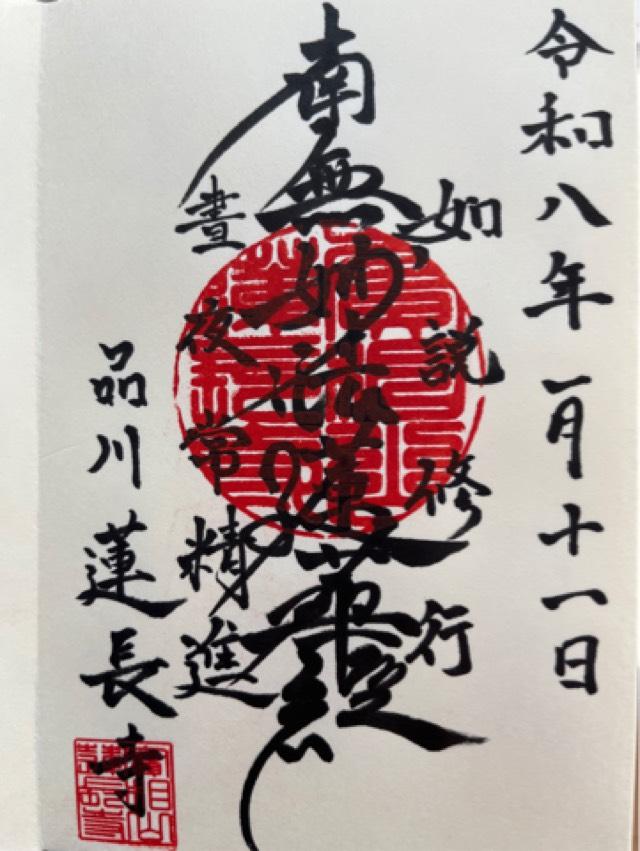 令和八年一月十一日
如説修行
南無妙法蓮華経
晝夜常精進
品川蓮長寺